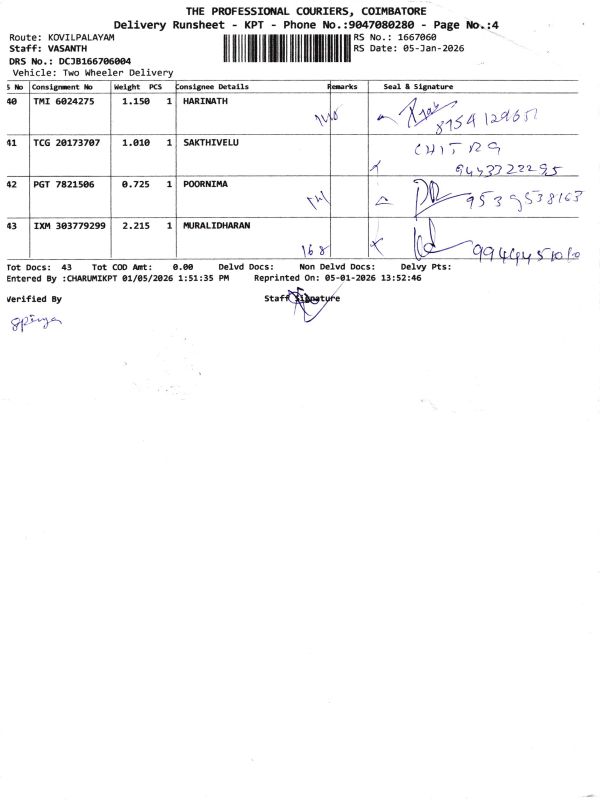 THE PROFESSIONAL COURIERS, COIMBATORE
Delivery Runsheet - KPT - Phone No.:9047080280 - Page No.:4
Route: KOVILPALAYAM RS No.: 1667060
Staff: VASANTH RS Date: 05-Jan-2026
DRS No.: DCJB166706004
Vehicle: Two Wheeler Delivery
S No Consignment No Weight PCS Consignee Details Remarks Seal & Signature
40 TMI 6024275 1.150 1 HARINATH
41 TCG 20173707 1.010 1 SAKTHIVELU
9443322295
42 PGT 7821506 0.725 1 POORNIMA 9539538163
43 IXM 303779299 2.215 1 MURALIDHARAN
168
Tot Docs: 43 Tot COD Amt: 0.00 Delvd Docs: Non Delvd Docs: Delvy Pts:
Entered By :CHARUMIKPT 01/05/2026 1:51:35 PM Reprinted On: 05-01-2026 13:52:46
Verified By Staff Signature